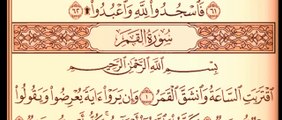 ٦١ فَاسْجُدُوا۟ لِلَّهِ وَاعْبُدُوا۟ ۩ ٦٢
سُورَةُ القَمَرِ
بِسْمِ اللَّهِ الرَّحْمَٰنِ الرَّحِيمِ
اقْتَرَبَتِ السَّاعَةُ وَانشَقَّ الْقَمَرُ ١ وَإِن يَرَوْا۟ ءَايَةً يُعْرِضُوا۟ وَيَقُولُوا۟